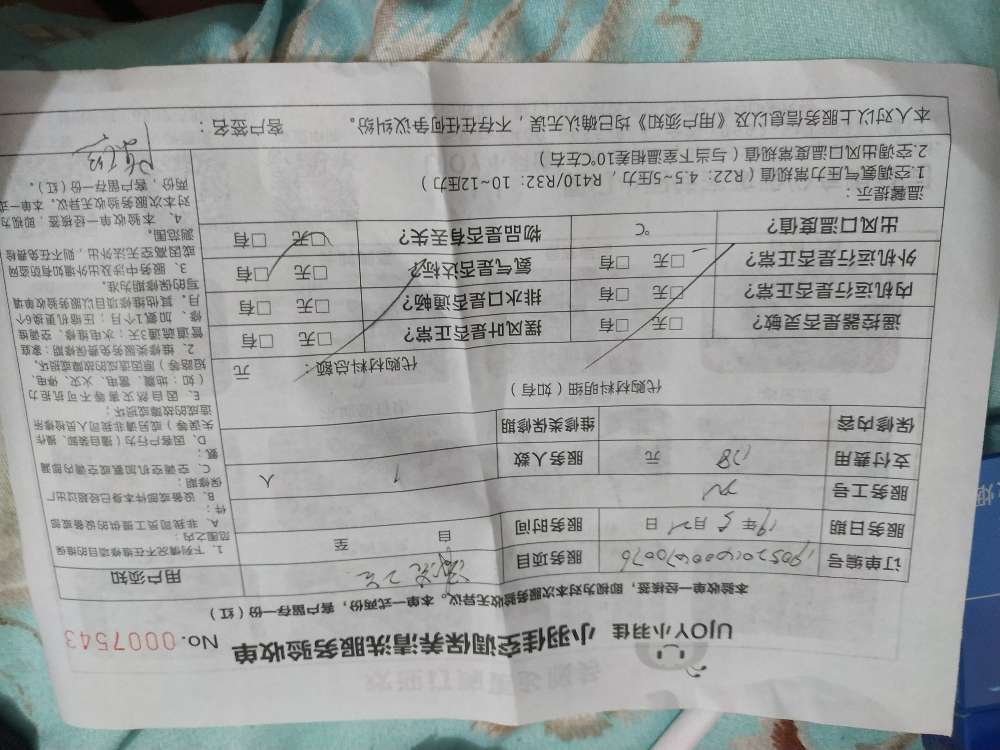 UJOY小羽佳 小羽佳空调保养清洗服务验收单 No. 0007543
本验收单一经核签，即视为对本次服务验收无异议。本单一式两份，客户留存一份（红）
订单编号 服务项目
服务日期 19年5月21日 服务时间 自 至
服务工号
支付费用 178 元 服务人数 1 人
保修内容 维修类保修期
代购材料明细（如有） 代购材料总额： 元
遥控器是否灵敏？ □无 □有 摆风叶是否正常？ □无 □有
内机运行是否正常？ □无 □有 排水口是否通畅？ □无 □有
外机运行是否正常？ □无 □有 氨气是否达标？ □无 □有
出风口温度值？ ℃ 物品是否有丢失？ □无 □有
温馨提示：
1.空调氨气压力常规值（R22：4.5~5压力，R410/R32：10~12压力）
2.空调出风口温度常规值（与当下室温相差10℃左右）
用户须知
1、下列情况不在维修项目的维保
范围之内：
A、非我司员工提供的设备或部
件；
B、设备或部件本身已经超过出厂
保修期；
C、空调空机加氨或空调内部漏
氨；
D、因客户行为（擅自装卸、操作
失误等）或另请非我司人员检修所
造成的故障或损坏；
E、因自然灾害等不可抗拒力
（如：地震、雷电、火灾、停电、
短路等）原因造成的故障或损坏。
2、维修类服务免费保修期：家庭
管道疏通3天；水电维修、空调维
修、加氨1个月；压缩机更换6个
月。其他维修项目以服务验收单填
写的保修期为准。
3、服务中涉及出外墙如有防盗网
或因高空无法外出，则不在免费检
测范围。
4、本验收单一经核签，即视为
对本次服务验收无异议，本单一式
两份，客户留存一份（红）。
本人对以上服务信息以及《用户须知》均已确认无误，不存在任何争议纠纷。 客户签名：